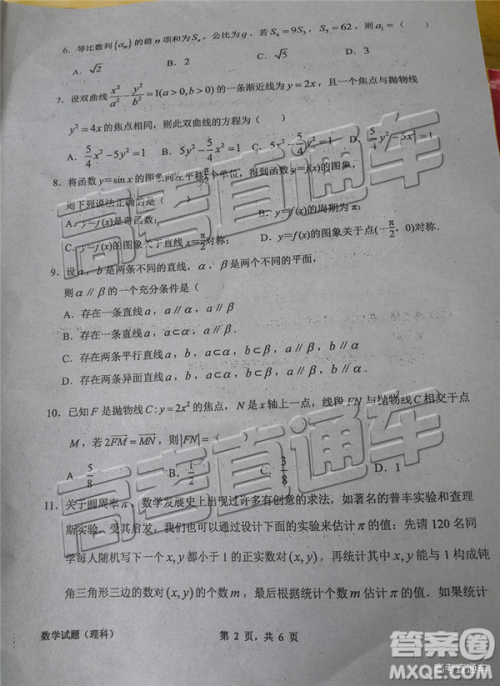 6. 等比数列{aₙ}的前n项和为Sₙ，公比为q．若S₆=9S₃，S₅=62，则a₁=（ ）
A. √2 B. 2 C. √5 D. 3
7. 设双曲线x²/a²-y²/b²=1(a>0,b>0)的一条渐近线为y=2x，且一个焦点与抛物线
y²=4x的焦点相同，则此双曲线的方程为（ ）
A. 5/4x²-5y²=1 B. 5x²-5/4y²=1 C. 5y²-5/4x²=1 D. 5/4y²-5x²=1
8. 将函数y=sinx的图象向左平移 个单位，得到函数y=f(x)的图象，
则下列说法正确的是（ ）
A. y=f(x)是奇函数； B. y=f(x)的周期为π
C. y=f(x)的图象关于直线x=π/2对称； D. y=f(x)的图象关于点(-π/2,0)对称．
9. 设a，b是两条不同的直线，α，β是两个不同的平面，
则α∥β的一个充分条件是（ ）
A. 存在一条直线a，a∥α，a∥β
B. 存在一条直线a，a⊂α，a∥β
C. 存在两条平行直线a，b，a⊂α，b⊂β，a∥β，b∥α
D. 存在两条异面直线a，b，a⊂α，b⊂β，a∥β，b∥α
10. 已知F是抛物线C:y=2x²的焦点，N是x轴上一点，线段FN与抛物线C相交于点
M，若2FM=MN，则|FN|=（ ）
A. 5/8 B. 1/2 C. 3/8 D. 1
11. 关于圆周率π，数学发展史上出现过许多有创意的求法，如著名的普丰实验和查理
斯实验．受其启发，我们也可以通过设计下面的实验来估计π的值：先请120名同
学每人随机写下一个x,y都小于1的正实数对(x,y)，再统计其中x,y能与1构成钝
角三角形三边的数对(x,y)的个数m，最后根据统计个数m估计π的值．如果统计
数学试题（理科） 第 2 页，共 6 页
高考直通车
高考直通车
答案圈
高考直通车
MXQE.COM